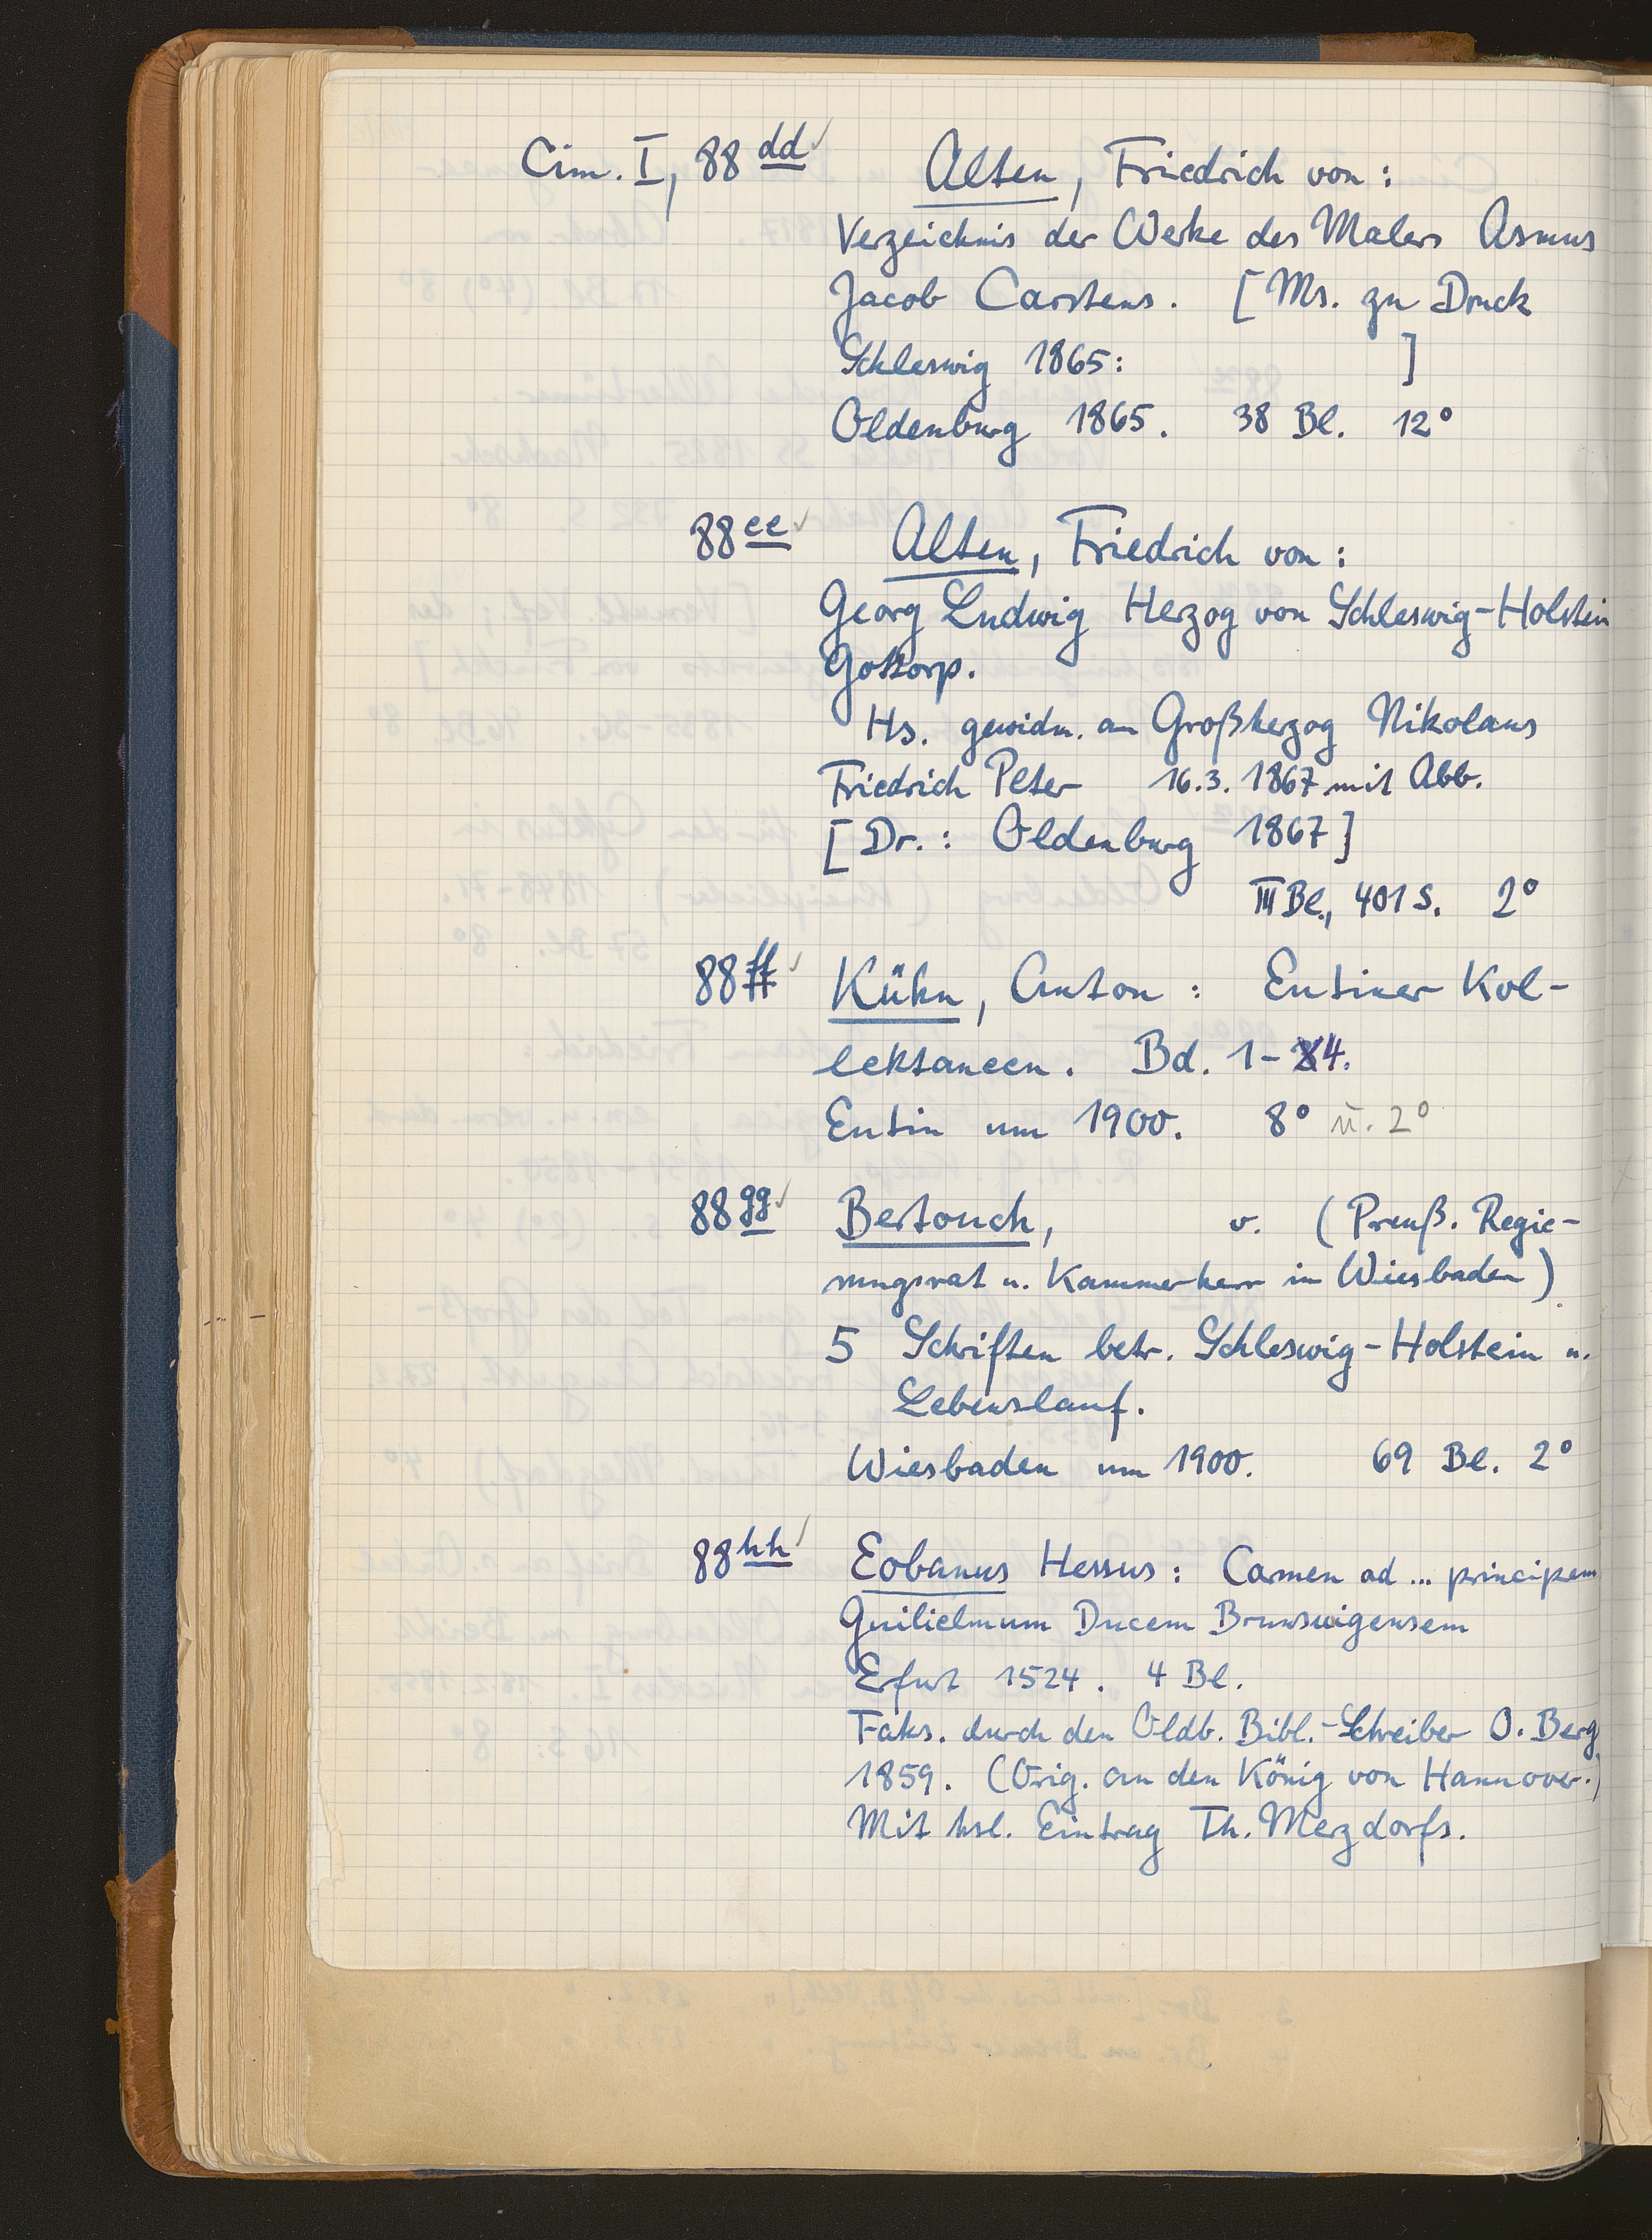 Cim. I, 88 dd ✓ Alten, Friedrich von:
Verzeichnis der Werke des Malers Asmus
Jacob Carstens. [Ms. zu Druck
Schleswig 1865: ]
Oldenburg 1865. 38 Bl. 12°
88 ee ✓ Alten, Friedrich von:
Georg Ludwig Herzog von Schleswig-Holstein
Gottorp.
Hs. gewidm. an Großherzog Nikolaus
Friedrich Peter 16.3.1867 mit Abb.
[Dr.: Oldenburg 1867]
III Bl., 401 S. 2°
88 ff ✓ Kühn, Anton: Eutiner Kol-
lektaneen. Bd. 1-4.
Eutin um 1900. 8° u. 2°
88 gg ✓ Bertouch, v. (Preuß. Regie-
rungsrat u. Kammerherr in Wiesbaden)
5 Schriften betr. Schleswig-Holstein u.
Lebenslauf.
Wiesbaden um 1900. 69 Bl. 2°
88 hh ✓ Eobanus Hessus: Carmen ad ... principem
Guilielmum Ducem Brunswigensem
Erfurt 1524. 4 Bl.
Faks. durch den Oldb. Bibl.-Schreiber O. Berg
1859. (Orig. an den König von Hannover.)
Mit hsl. Eintrag Th. Merzdorfs.